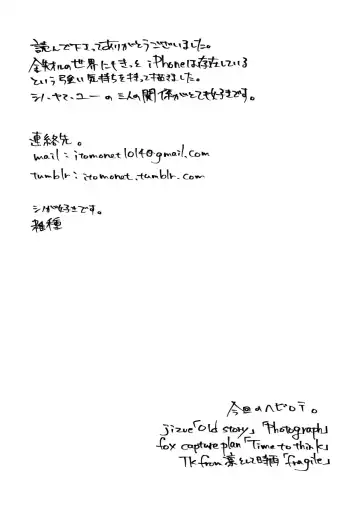 読んで下さってありがとうございました。
鉄オルの世界にもきっと iPhoneは存在している
という強い気持ちを持って描きました。
シノ・ヤマ・ユーの三人の関係がとても好きです。
連絡先。
mail : itomonet1014@gmail.com
tumblr : itomonet.tumblr.com
シノが好きです。
雑種
今回のヘビロテ。
jizue「Old story」「Photograph」
fox capture plan「Time to think」
TK from 凛として時雨「fragile」